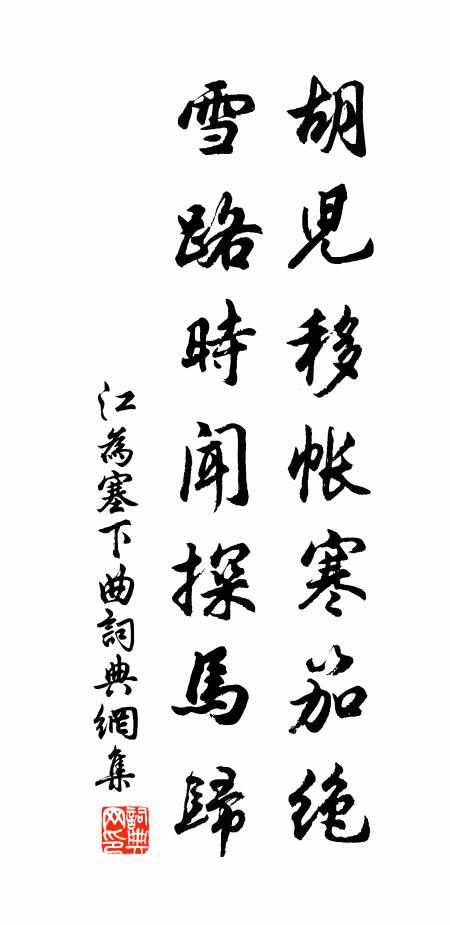 胡兒移帳寒笳絶
雪路時聞探馬歸
江為塞下曲詞典網集
詞典网印